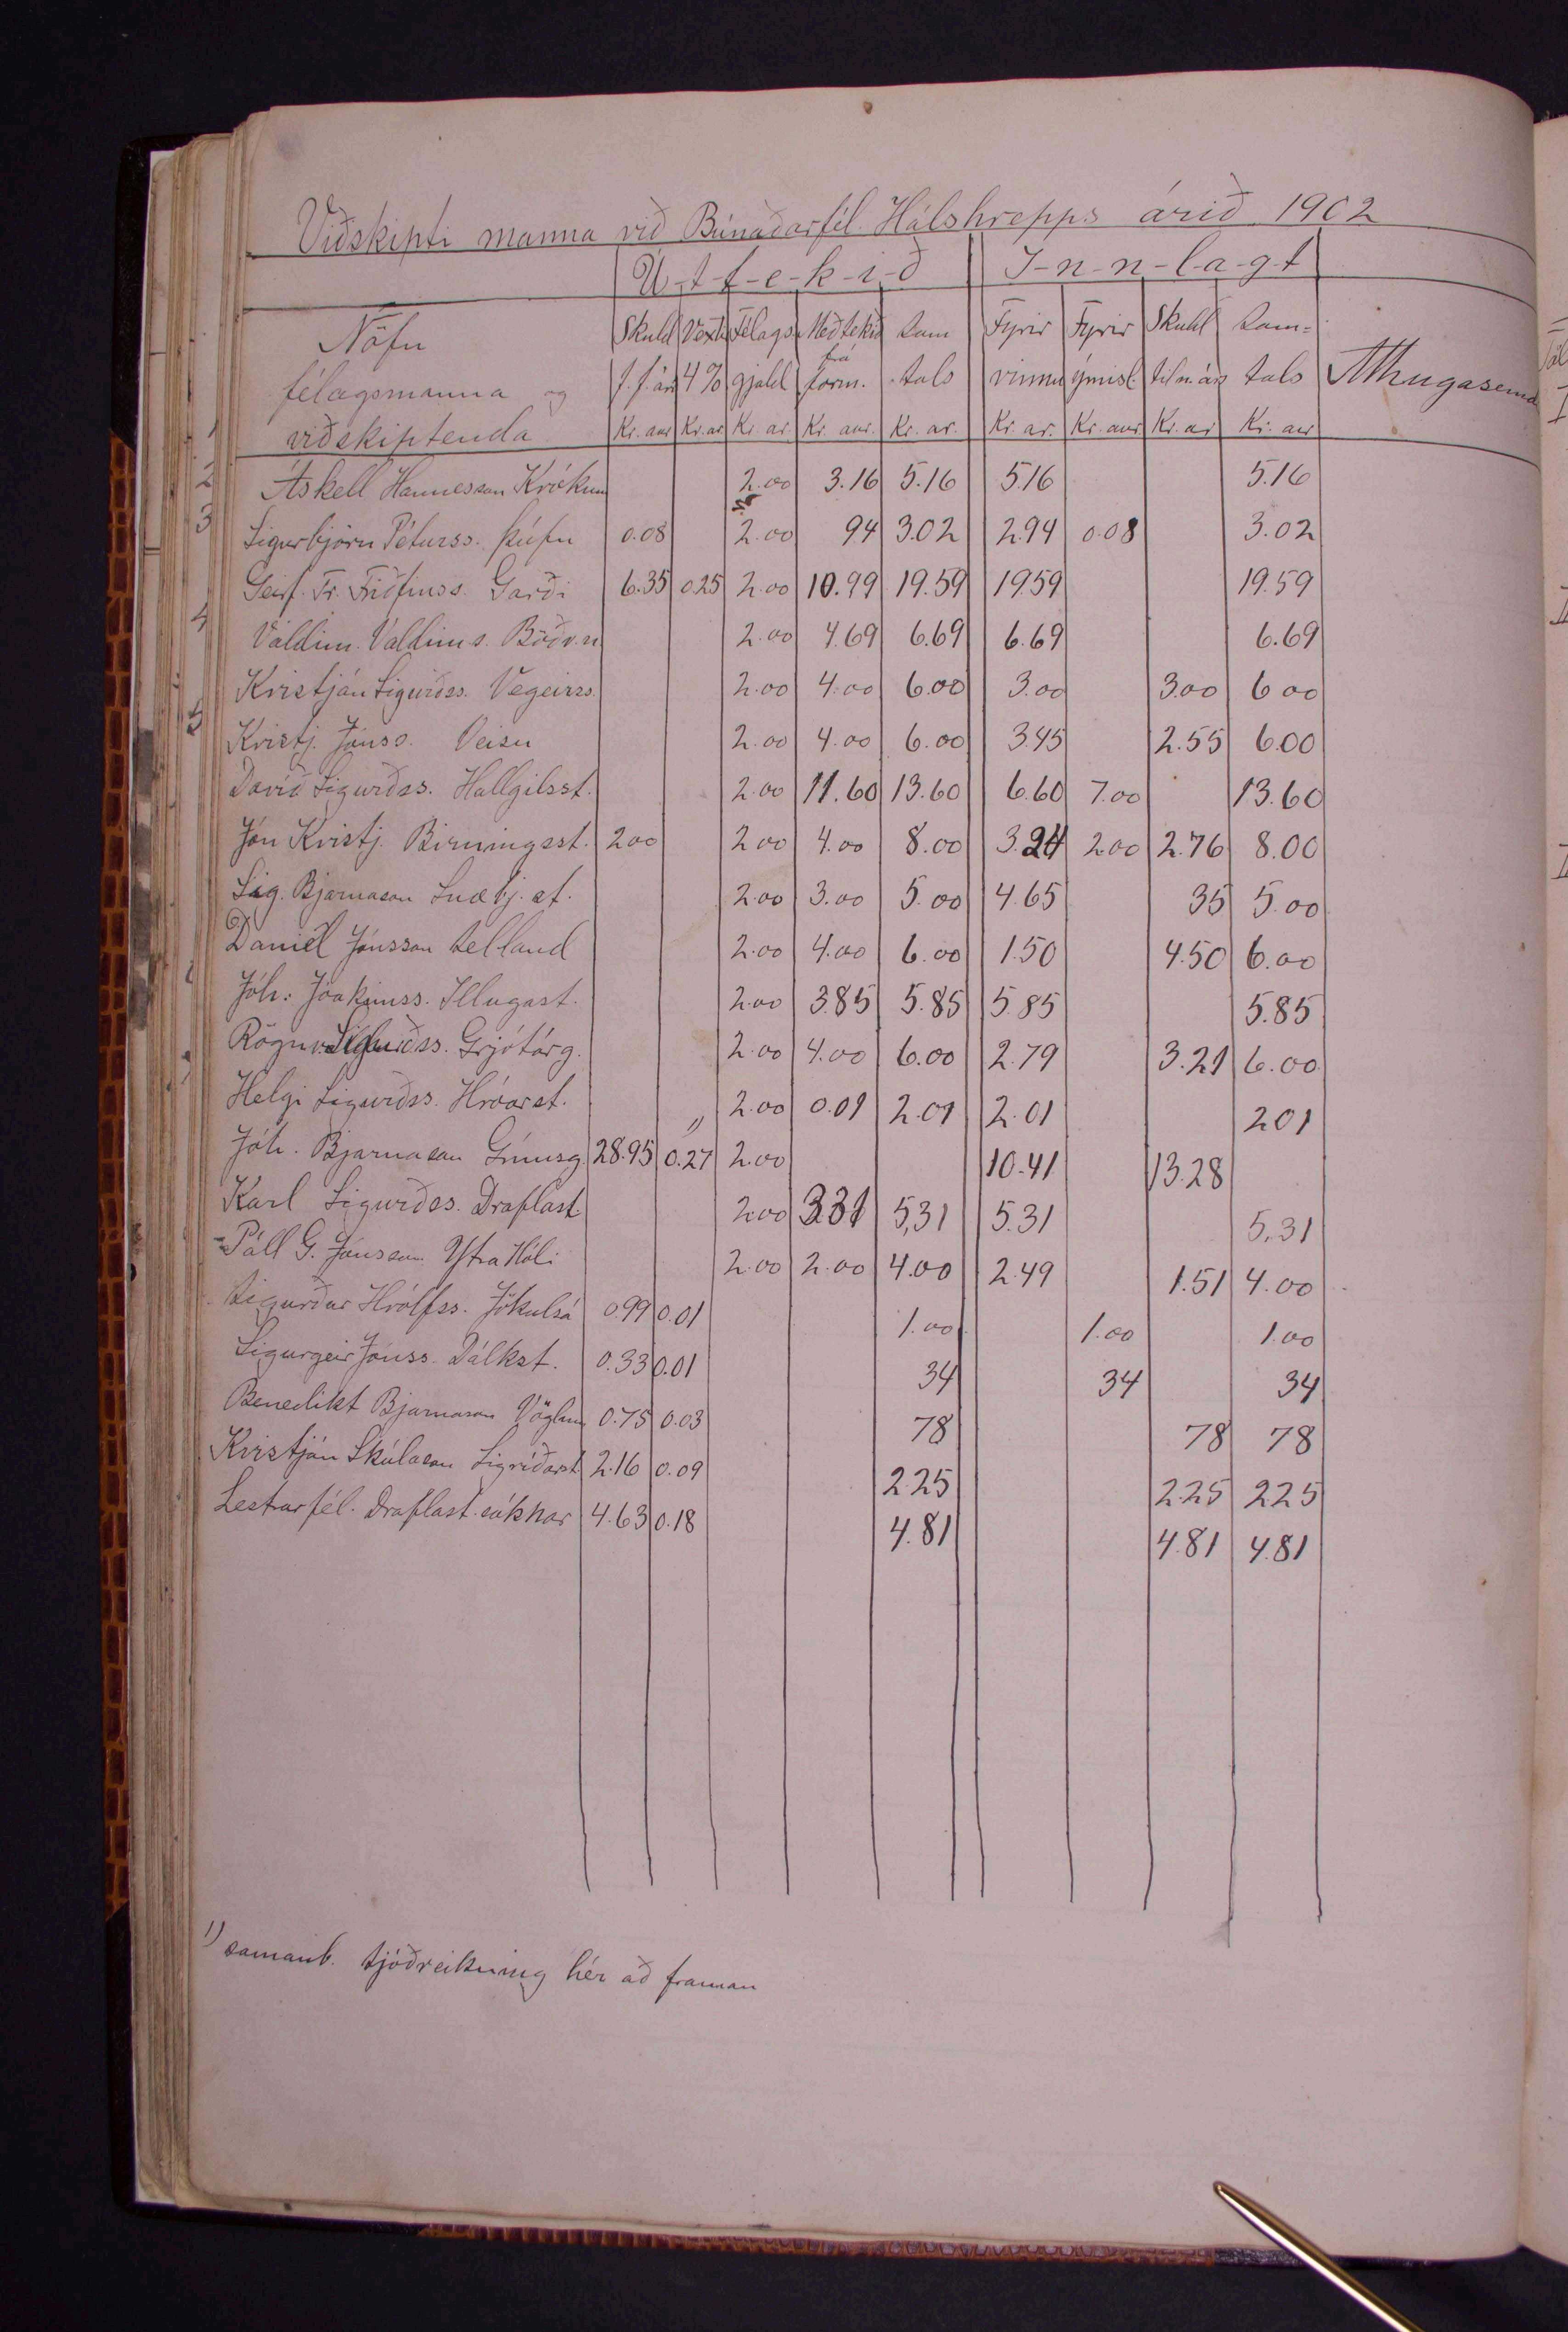 Viðskipti manna við Búnaðarfél. Hálshrepps árið 1902
Ú-t-t-e-k-i-ð I-n-n-l-a-g-t
Nöfn Skuld Vextir Félags- Meðtekið Sam Fyrir Fyrir Skuld Sam=
félagsmanna og f.f. ári 4% gjald frá form. tals vinnu ýmisl. til n. árs tals Athugasemd
viðskiptenda Kr. aur Kr. ar Kr. ar. Kr. aur. Kr. ar. Kr. ar. Kr. aur Kr. ar Kr. aur
Áskell Hannesson Krókum 2.00 3.16 5.16 5.16 5.16
Sigurbjörn Péturss. Þúfu 0.08 2.00 94 3.02 2.94 0.08 3.02
Geirf. Tr. Friðfinss. Garði 6.35 0.25 2.00 10.99 19.59 19.59 19.59
Valdim. Valdims. Böðv.n. 2.00 4.69 6.69 6.69 6.69
Kristján Sigurðss. Vegeirss. 2.00 4.00 6.00 3.00 3.00 6.00
Kristj. Jónss. Veisu 2.00 4.00 6.00 3.45 2.55 6.00
Davíð Sigurðss. Hallgilsst. 2.00 11.60 13.60 6.60 7.00 13.60
Jón Kristj. Birningsst. 2.00 2.00 4.00 8.00 3.24 2.00 2.76 8.00
Sig. Bjarnason Snæbj.st. 2.00 3.00 5.00 4.65 35 5.00
Daníel Jónsson Selland 2.00 4.00 6.00 1.50 4.50 6.00
Jóh: Jóakimss. Illugast. 2.00 3.85 5.85 5.85 5.85
Rögnv. Sigurðss. Grjótárg. 2.00 4.00 6.00 2.79 3.21 6.00
Helgi Sigurðss. Hróarst. 2.00 0.01 2.01 2.01 2.01
Jóh. Bjarnason Grímsg. 28.95 0.27 1) 2.00 10.41 13.28
Karl Sigurðss. Draflast. 2.00 3.31 5,31 5.31 5,31
Páll G. Jónsson Ytra Hóli 2.00 2.00 4.00 2.49 1.51 4.00
Sigurður Hrólfss. Jökulsá 0.99 0.01 1.00 1.00 1.00
Sigurgeir Jónss. Dálkst. 0.33 0.01 34 34 34
Benedikt Bjarnason Vöglum 0.75 0.03 78 78 78
Kristján Skúlason Sigríðarst. 2.16 0.09 2.25 2.25 2.25
Lestrarfél. Draflast.sóknar 4.63 0.18 4.81 4.81 4.81
1) samanb. sjóðreikning hér að framan